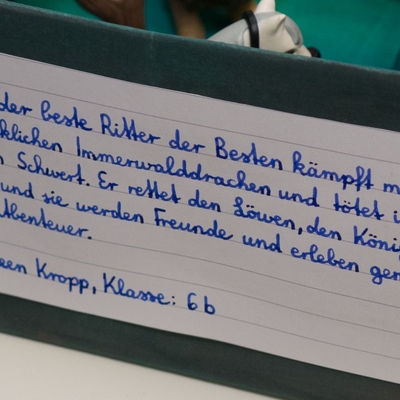 der beste Ritter der Besten kämpft m
klichen Immerwalddrachen und tötet i
Schwert. Er rettet den Löwen, den Köni
und sie werden Freunde und erleben ge
Abenteuer.
een Kropp, Klasse: 6b